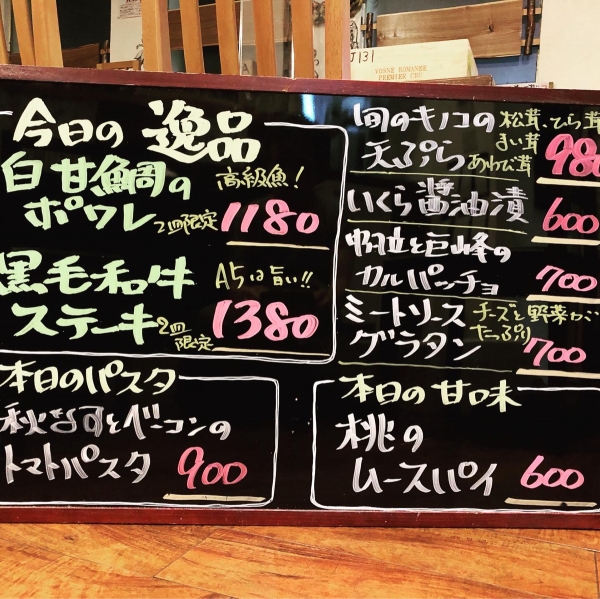 J131
VOSNE ROMANEE
PREMIER CRU
今日の逸品
白甘鯛の 高級魚!
ポワレ 2皿限定 1180
黒毛和牛 A5は旨い!!
ステーキ 2皿限定 1380
本日のパスタ
秋なすとベーコンの
トマトパスタ 900
旬のキノコの 松茸・ひら茸
天ぷら まい茸 あわび茸 980
いくら醤油漬 600
帆立と巨峰の
カルパッチョ 700
ミートソース チーズと野菜が
グラタン たっぷり 700
本日の甘味
桃の
ムースパイ 600